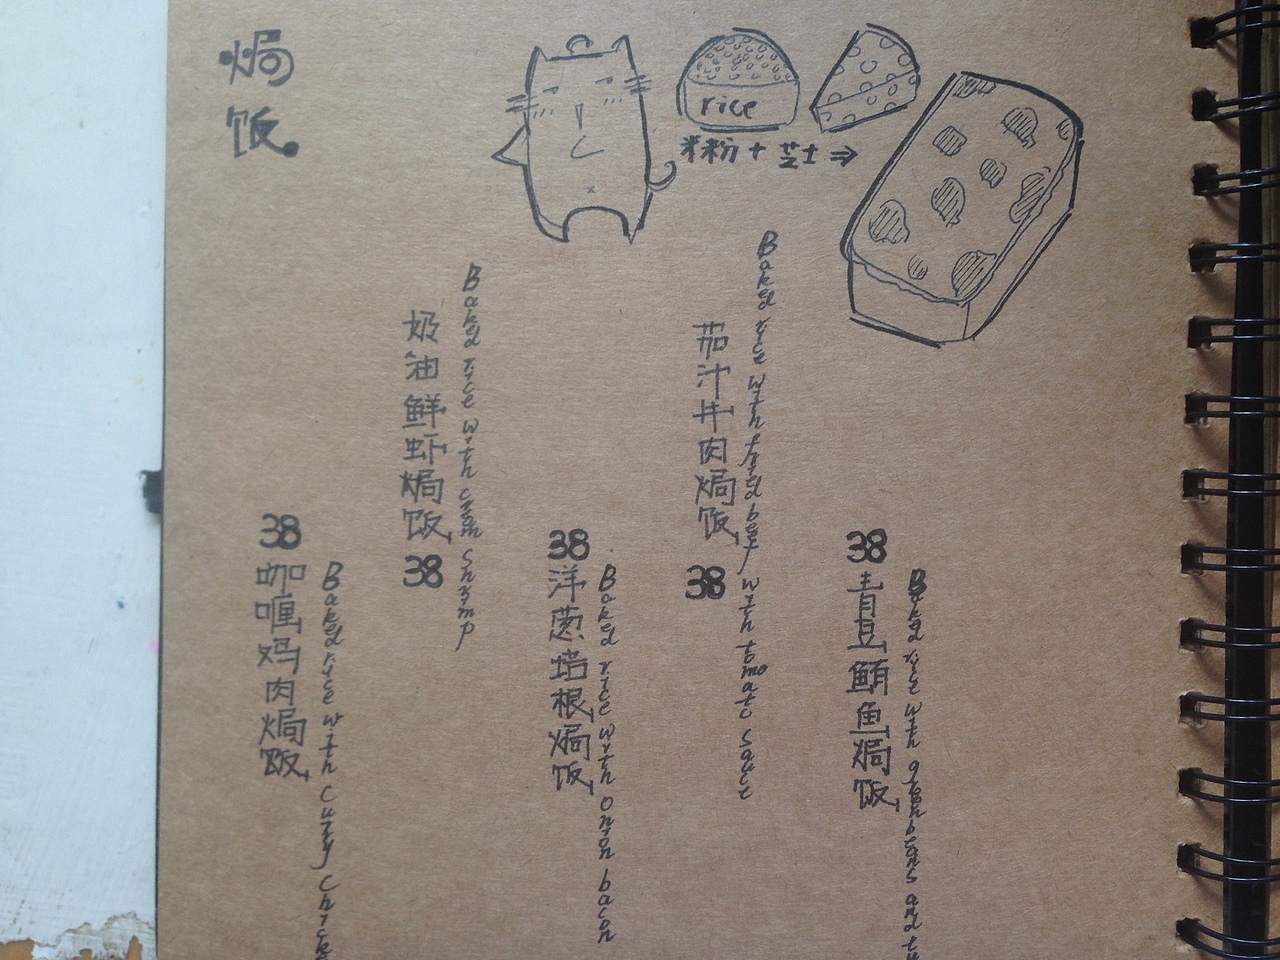 焗饭
rice
米粉 + 芝士 ⇒
38
咖喱鸡肉焗饭
Baked rice with curry chick
奶油鲜虾焗饭
38
Baked rice with shrimp
38
洋葱培根焗饭
Baked rice with onion bacon
茄汁牛肉焗饭
38
Baked rice with fried beef with tomato sauce
38
青豆鲔鱼焗饭
Baked rice with green beans and